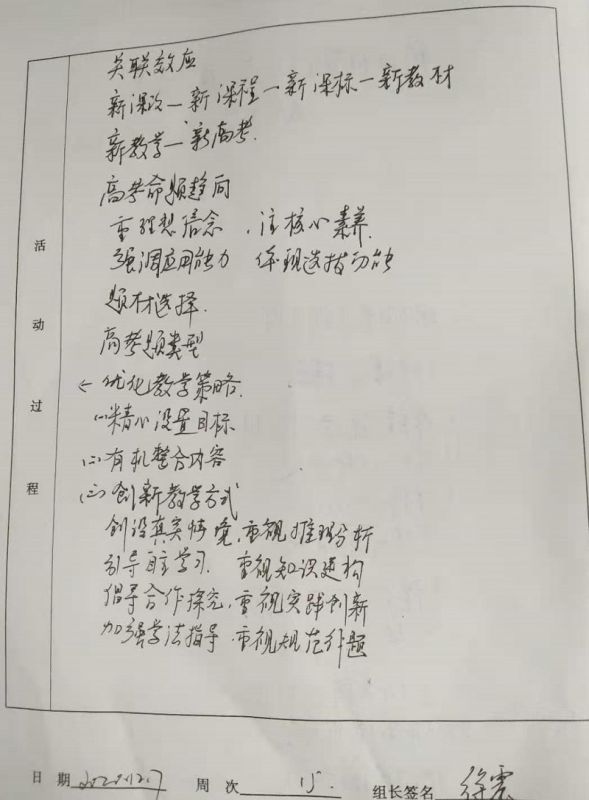 关联效应
新课改一新课程一新课标一新教材
新教学一新高考.
高考命题趋向
重理想信念，注核心素养.
强调应用能力 体现选拔功能
题材选择.
高考题类型
<优化教学策略.
(1)精心设置目标
(二)有机整合内容
(三)创新教学方式
创设真实情境，重视推理分析
引导自主学习. 重视知识建构
倡导合作探究，重视实践创新
加强学法指导.重视规范作题
活动过程
日期
周次 15.
组长签名